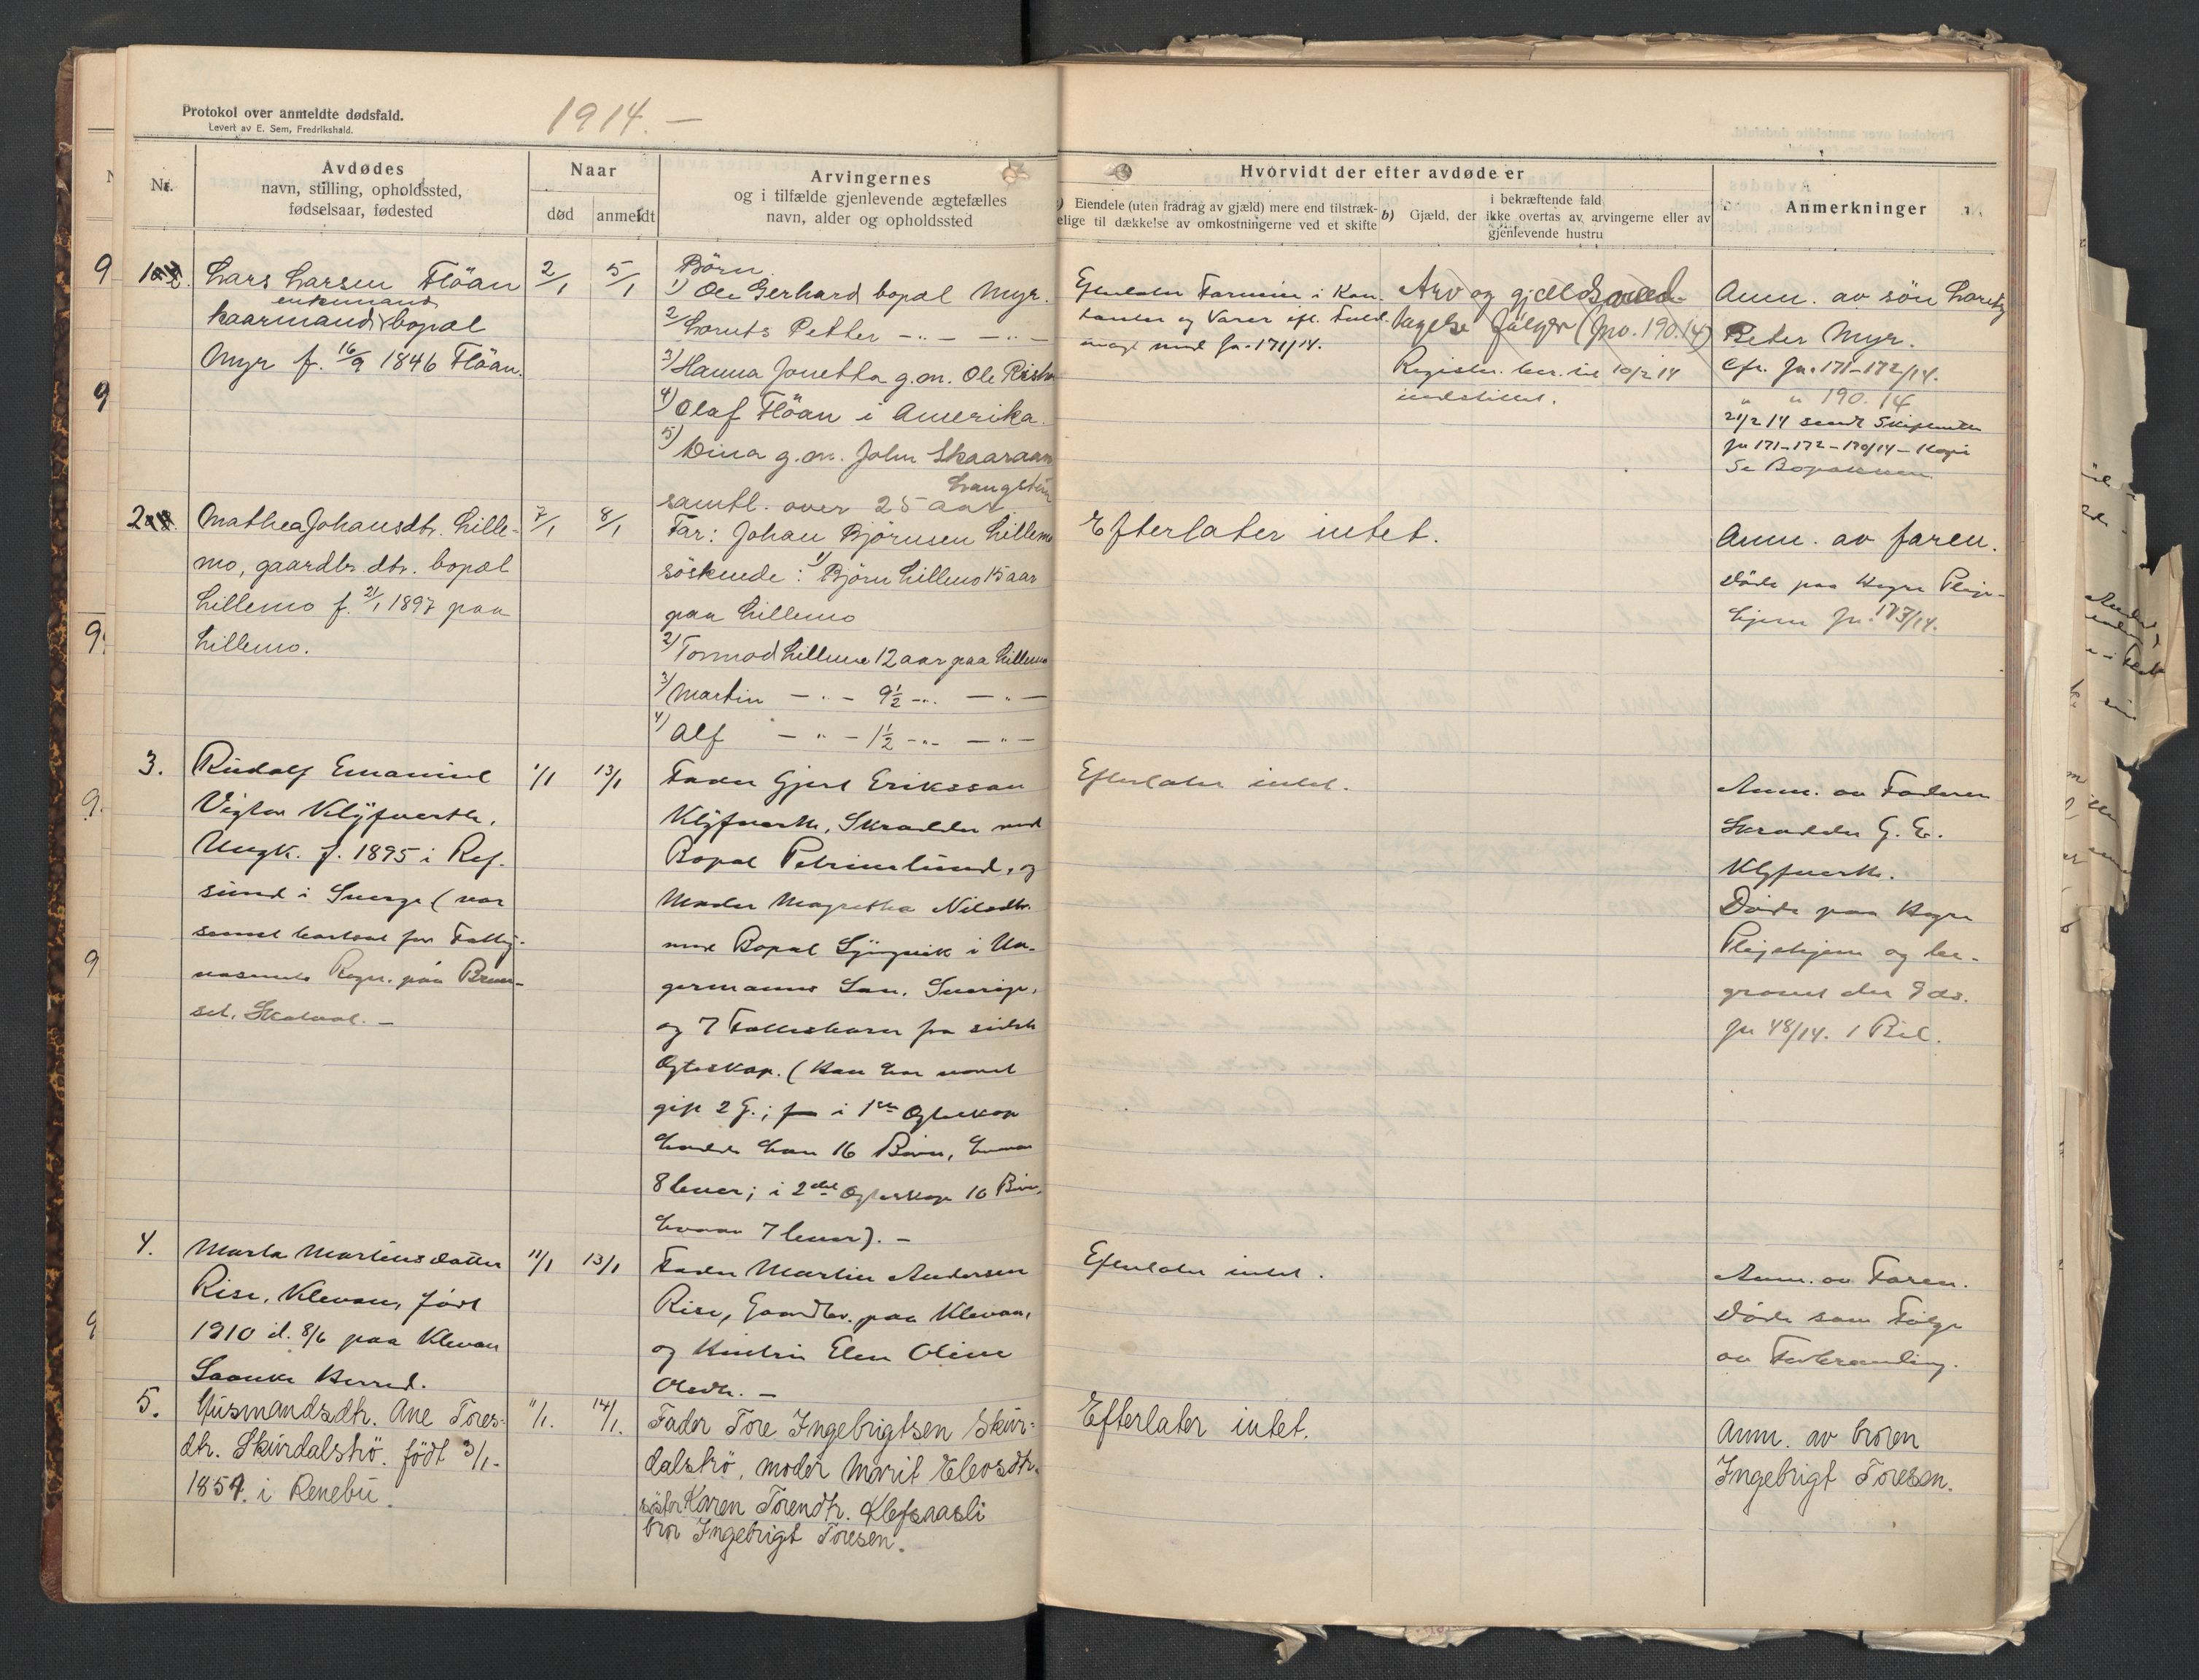 Protokol over anmeldte dødsfald.
Levert av E. Sem, Fredrikshald.
1914. —
Nr.
Avdødes
navn, stilling, opholdssted,
fødselsaar, fødested
Naar
død
anmeldt
Arvingernes
og i tilfælde gjenlevende ægtefælles
navn, alder og opholdssted
Hvorvidt der efter avdøde er
Eiendele (uten fradrag av gjæld) mere end tilstræk-
elige til dækkelse av omkostningerne ved et skifte
b) Gjæld, der
i bekræftende fald
ikke overtas av arvingerne eller av
gjenlevende hustru
Anmerkninger
1
Lars Larsen Flöan
enkemand
kaarmand bopæl
Myr f. 16/9 1846 Flöan.
2/1
5/1
Börn
1) Ole Gerhard bopæl Myr.
2) Lorents Petter — " — — " —
3) Hanna Jonetta g.m. Ole
4) Olaf Flöan i Amerika.
5) Dina g.m. John Skaaraan
Langstein
samtl. over 25 aar
Efterlater Formue i Kon-
tanter og Varer efl. Fuld-
magt med Jn. 171/14.
Arv og gjældsved-
tagelse følger (Jno. 190.14)
10/2 14
indstillet.
Anm. av sön Lorents
Peter Myr.
Cfr. Jn. 171-172/14.
" " 190. 14
21/2 14 sendt
Jn 171-172-190/14 - Kopi
Se
2
Mathea Johansdtr. Lille-
mo, gaardbr. dtr. bopæl
Lillemo f. 21/1 1897 paa
Lillemo.
7/1
8/1
Far: Johan Björnsen Lillemo
söskende: 1) Björn Lillemo 15 aar
paa Lillemo
2) Tormod Lillemo 12 aar paa Lillemo
3) Martin — " — 9½ — " — — " —
4) Alf — " — 1½ — " — — " —
Efterlater intet.
Anm. av faren.
Döde paa Hegre Pleje-
hjem Jn. 173/14.
3.
Rudolf Emanuel
Viktor Klyfverth,
Ungk. f. 1895 i Ref-
sund i Sverge (var
senest bosat paa
Regn. paa
Skatval. —
1/1
13/1
Fader Gjert Eriksson
Klyfverth, Skrædder med
Bopæl Petrinelund, og
Moder Magretha Nilsdtr.
med Bopæl i An-
germanns Len, Sverige,
og 7 Fællesbarn fra sidste
Ægteskap. (Han har været
gift 2 G.; i 1ste Ægteskap
havde han 16 Börn, hvorav
8 lever; i 2det Ægteskap 10 Börn,
hvorav 7 lever). —
Efterlater intet.
Anm. av Faderen
Skrædder G. E.
Klyfverth.
Döde paa Hegre
Plejehjem og be-
gravet den 9 ds.
Jn 48/14. 1 Bil.
4.
Marta Martinsdatter
Rise, Klevan, født
1910 d. 8/6 paa Klevan
Laanke Herred.
11/1
13/1
Fader Martin Andersen
Rise, Gaardbr. paa Klevan,
og Hustru Elen Oline
Olsdtr. —
Efterlater intet.
Anm. av Faren.
Døde som Følge
av Forbrænding.
5.
Husmandsdtr. Ane Tores-
dtr. Skurdalströ. födt 3/1-
1854. i Renebu.
11/1.
14/1.
Fader Tore Ingebrigtsen Skur-
dalströ, moder Marit Elevsdtr.
söster Karen Toresdtr. Klefsaasli
bror Ingebrigt Toresen.
Efterlater intet.
Anm. av broren
Ingebrigt Toresen.